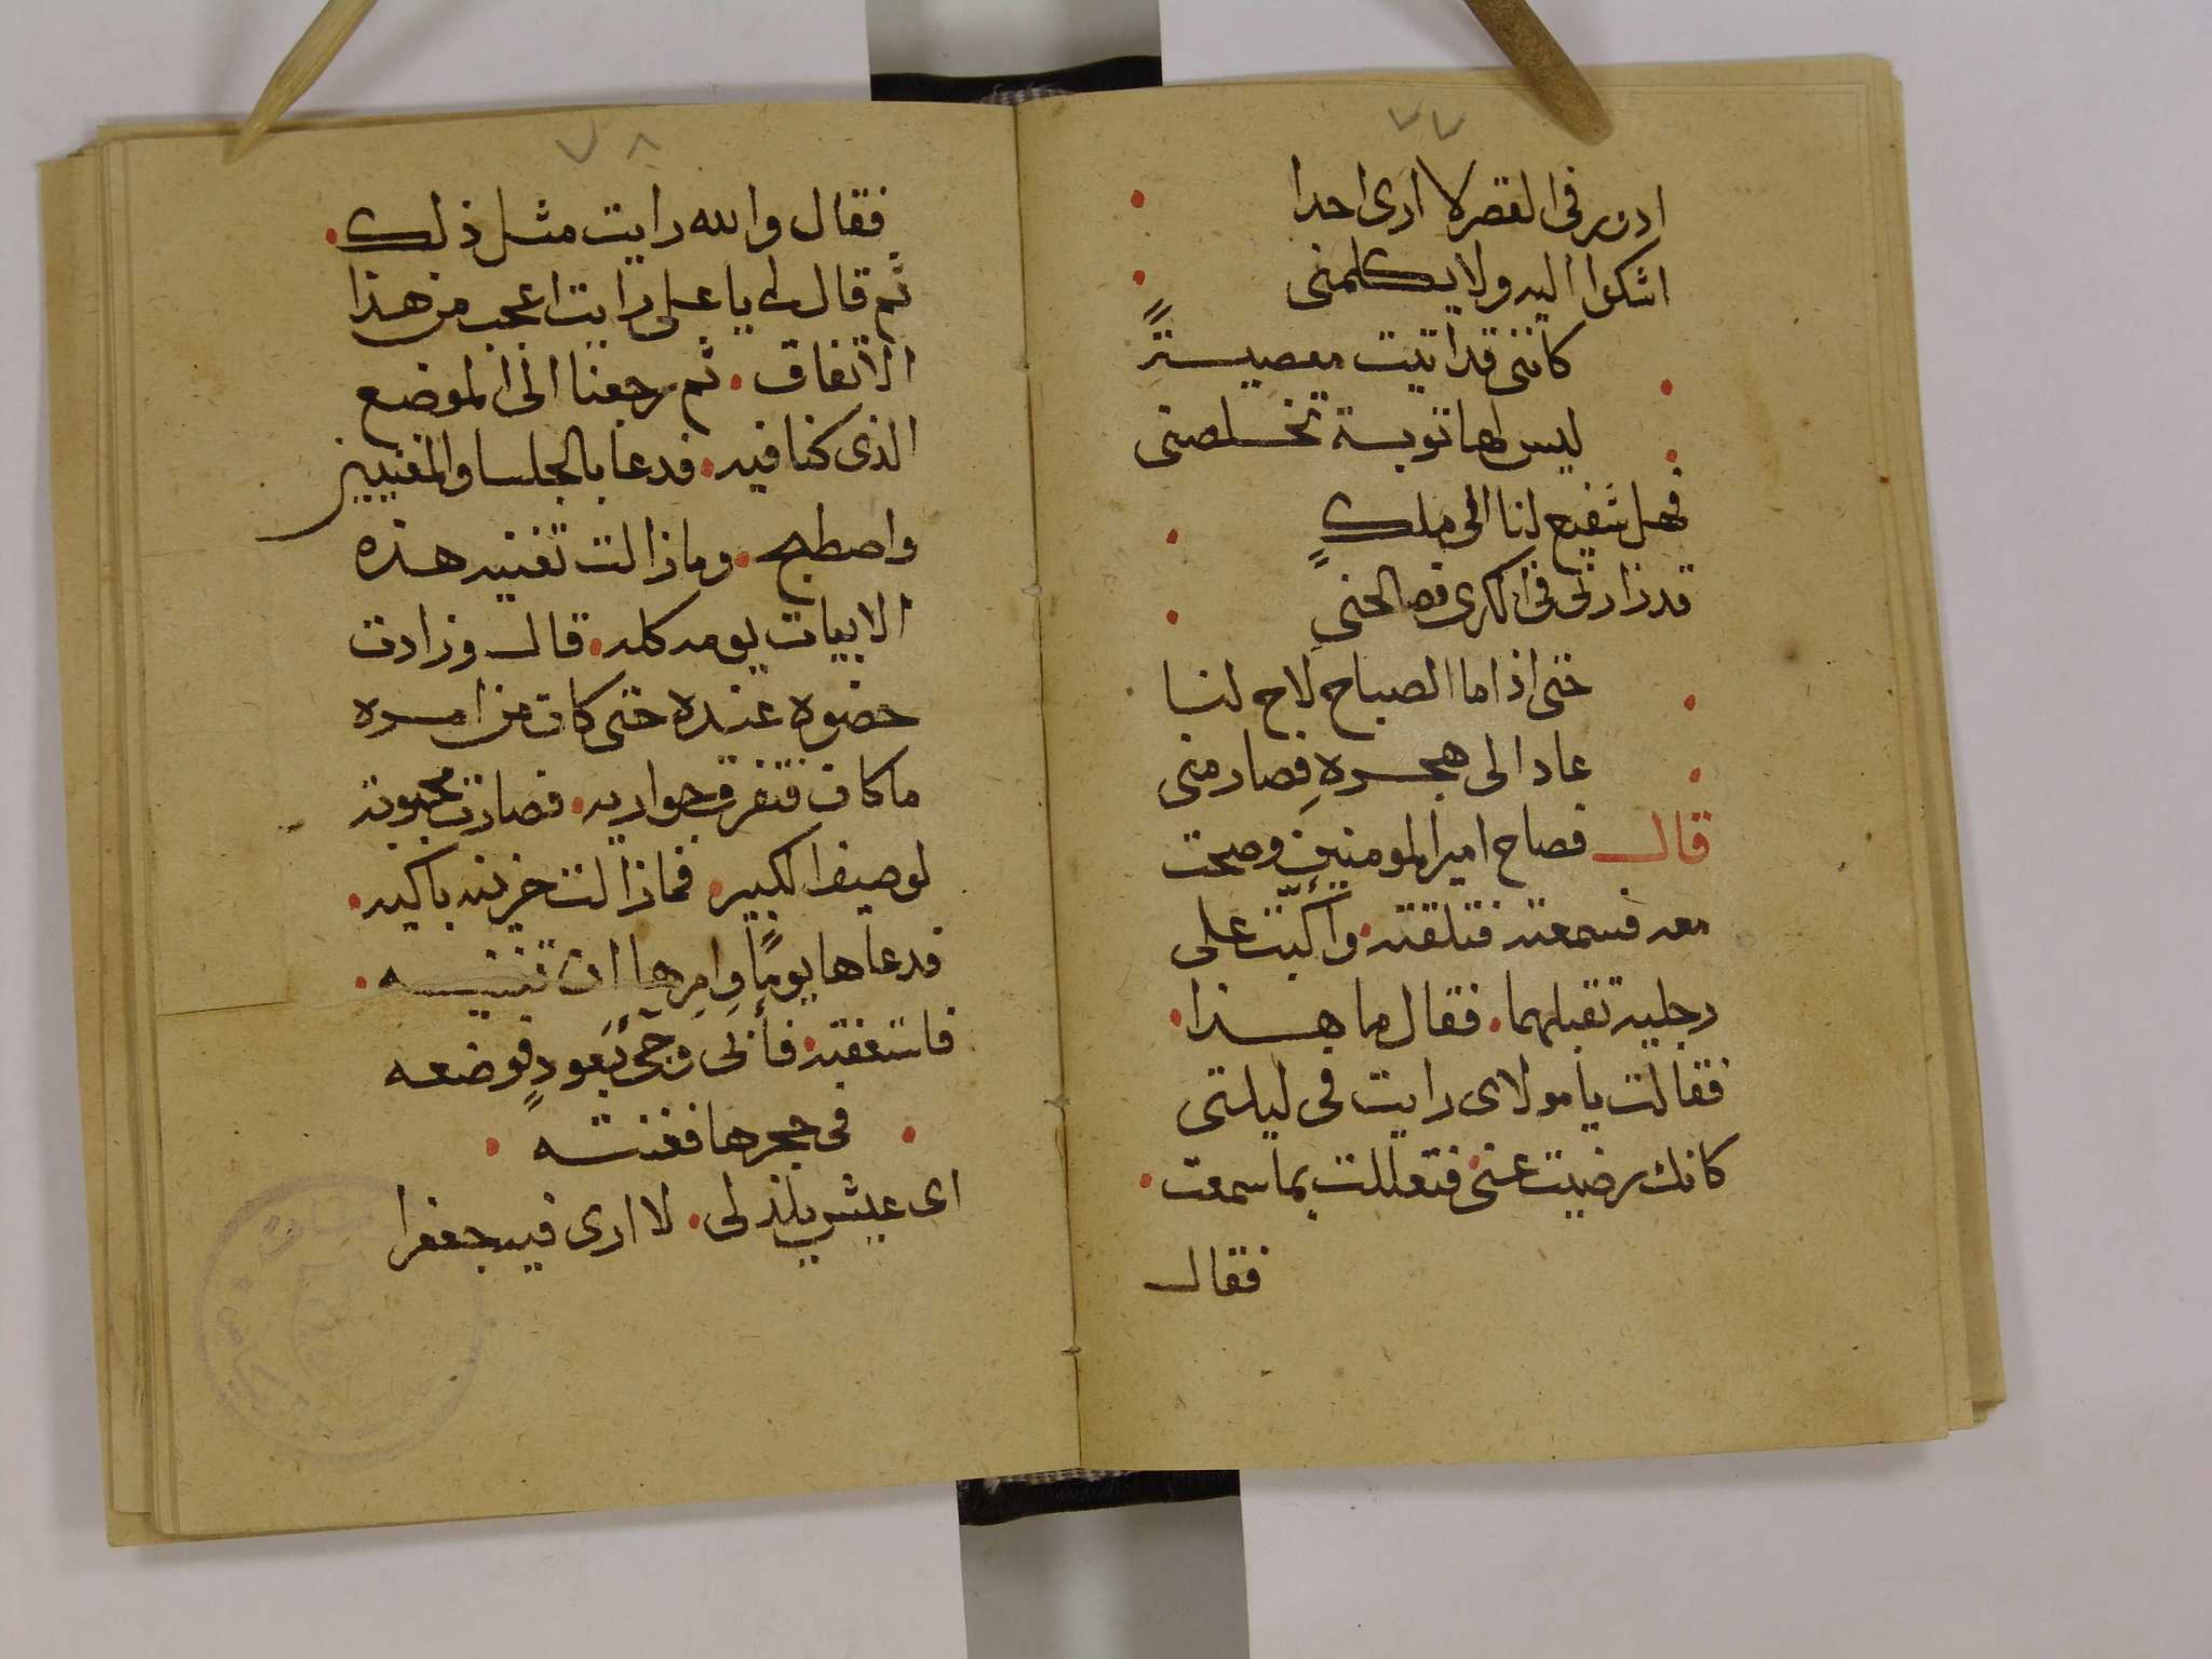 ٧٧
ادور فى القصر لا ارى احدا
اشكوا اليه ولا يكلمنى
كاننى قد اتيت معصيةً
ليس لها توبة تخلصنى
فهل شفيع لنا الى ملكٍ
قد زارنى فى الكرى فصالحنى
حتى اذا ما الصباح لاح لنا
عاد الى هجرهِ فصارمنى
قال فصاح امير المومنين وصحت
معه فسمعته فتلقته وأكبّت على
رجليه تقبلهما فقال ما هذا
فقالت يا مولاى رايت فى ليلتى
كانك رضيت عنى فتعللت بما سمعت
فقال
٧٨
فقال والله رايت مثل ذلك
ثم قال لى يا على رايت اعجب من هذا
الاتفاق ثم رجعنا الى الموضع
الذى كنا فيه فدعا بالجلسا والمغنيين
واصطبح وما زالت تغنيه هذه
الابيات يومه كله قال وزادت
حضوة عنده حتى كان من امره
ما كان فتفرق جواريه فصارت محبوبة
لوصيف الكبير فما زالت حزينه باكيه
فدعاها يومًا وامرها ان تغنيه
فاستعفته فأبى وجئ بعودٍ فوضعه
فى حجرها فغنته
اى عيش يلذ لى لا ارى فيه جعفرا